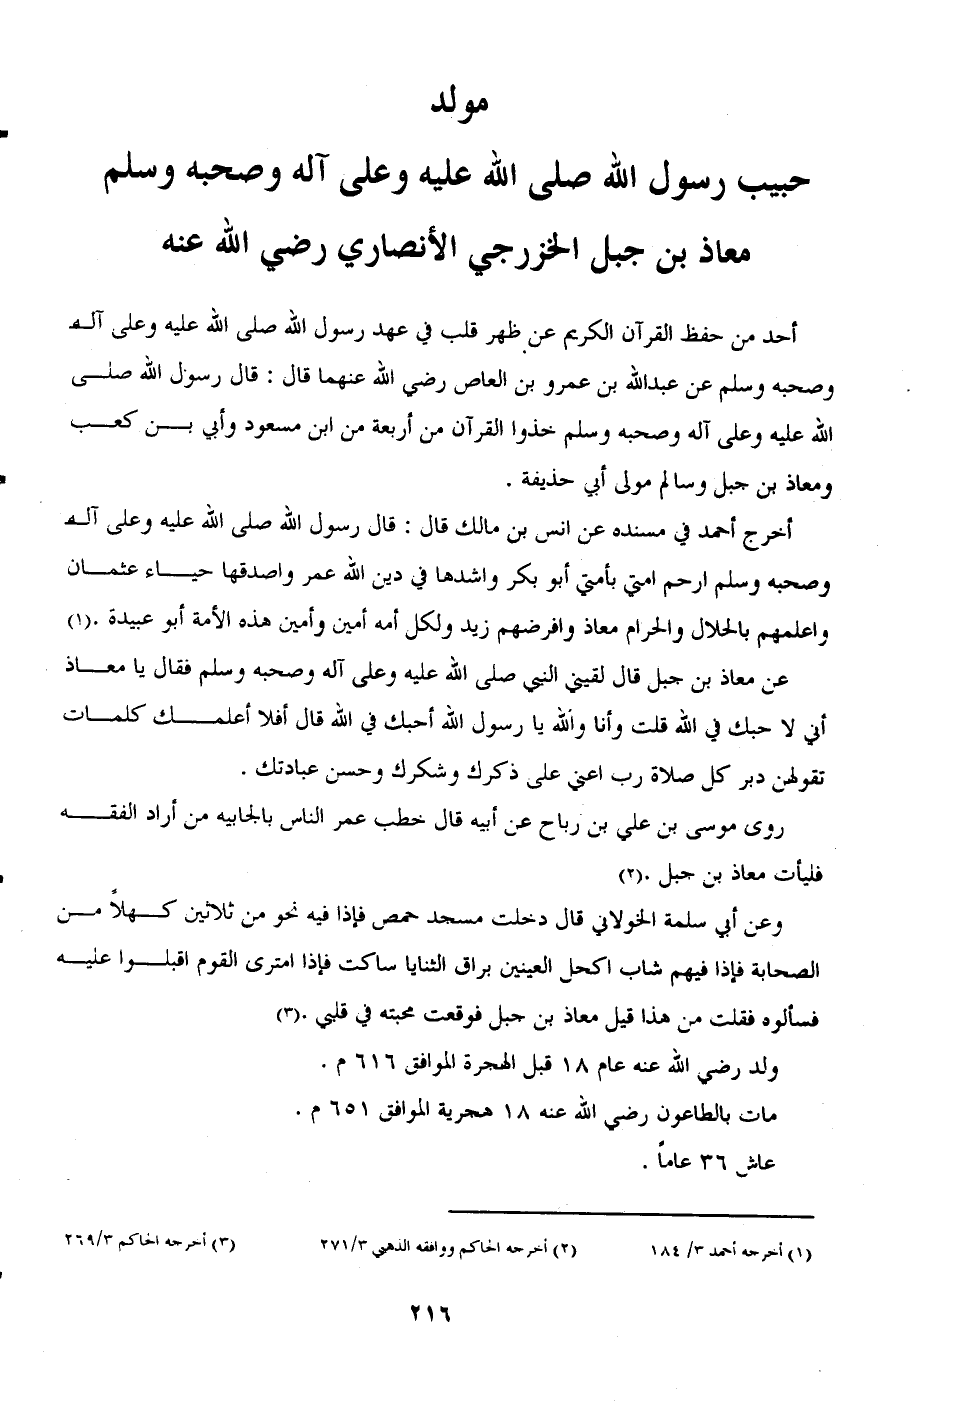 مولد
حبيب رسول الله صلى الله عليه وعلى آله وصحبه وسلم
معاذ بن جبل الخزرجي الأنصاري رضي الله عنه
أحد من حفظ القرآن الكريم عن ظهر قلب في عهد رسول الله صلى الله عليه وعلى آله
وصحبه وسلم عن عبدالله بن عمرو بن العاص رضي الله عنهما قال : قال رسول الله صلى
الله عليه وعلى آله وصحبه وسلم خذوا القرآن من أربعة من ابن مسعود وأبي بن كعب
ومعاذ بن جبل وسالم مولى أبي حذيفة .
أخرج أحمد في مسنده عن انس بن مالك قال : قال رسول الله صلى الله عليه وعلى آله
وصحبه وسلم ارحم امتي بأمتي أبو بكر واشدها في دين الله عمر واصدقها حياء عثمان
واعلمهم بالحلال والحرام معاذ وافرضهم زيد ولكل أمه أمين وأمين هذه الأمة أبو عبيدة .(١)
عن معاذ بن جبل قال لقيني النبي صلى الله عليه وعلى آله وصحبه وسلم فقال يا معاذ
أني لا حبك في الله قلت وأنا والله يا رسول الله أحبك في الله قال أفلا أعلمك كلمات
تقولهن دبر كل صلاة رب اعني على ذكرك وشكرك وحسن عبادتك .
روى موسى بن علي بن رباح عن أبيه قال خطب عمر الناس بالجابيه من أراد الفقه
فليأت معاذ بن جبل .(٢)
وعن أبي سلمة الخولاني قال دخلت مسجد حمص فإذا فيه نحو من ثلاثين كهلاً من
الصحابة فإذا فيهم شاب اكحل العينين براق الثنايا ساكت فإذا امترى القوم اقبلوا عليه
فسألوه فقلت من هذا قيل معاذ بن جبل فوقعت محبته في قلبي .(٣)
ولد رضي الله عنه عام ١٨ قبل الهجرة الموافق ٦١٦ م .
مات بالطاعون رضي الله عنه ١٨ هجرية الموافق ٦٥١ م .
عاش ٣٦ عاماً .
(١) أخرجه أحمد ٣/ ١٨٤ (٢) أخرجه الحاكم ووافقه الذهبي ٢٧١/٣ (٣) أخرجه الحاكم ٢٦٩/٣
٢١٦